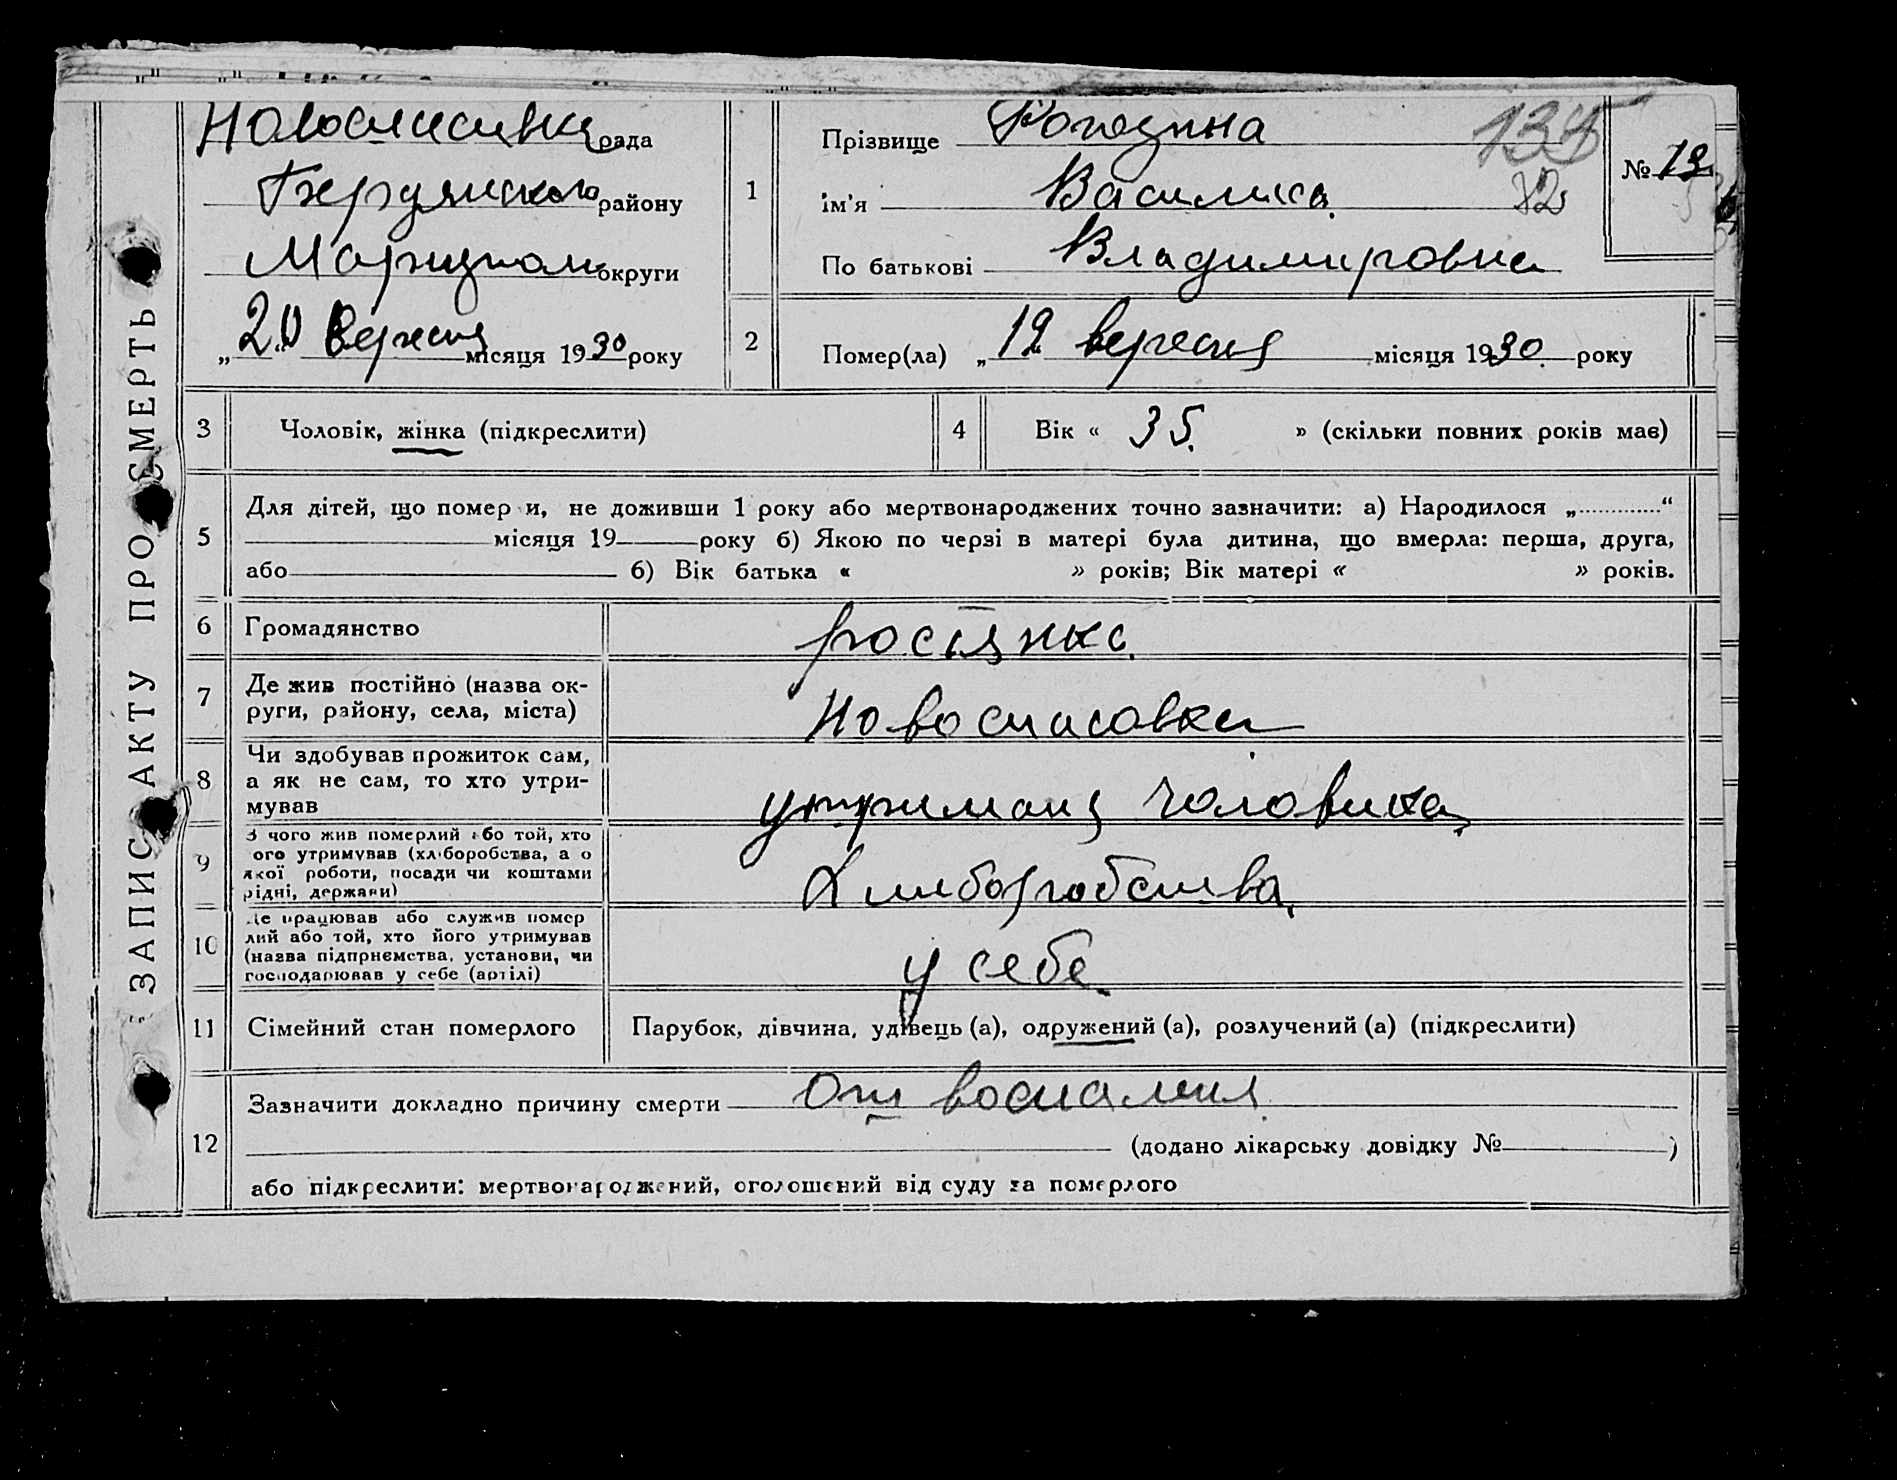 ЗАПИС АКТУ ПРО СМЕРТЬ
Новоспасивка рада
Бердянского району
Мариуполь округи
„20“ Вересня місяця 1930 року
1
Прізвище Рогозина
ім'я Василиса
По батькові Владимировна
138
32
№ 13
2
Помер(ла) „19 вересня місяця 1930 року
3 Чоловік, жінка (підкреслити)
4 Вік « 35. » (скільки повних років має)
5 Для дітей, що помер и, не доживши 1 року або мертвонароджених точно зазначити: а) Народилося „............“
місяця 19 року б) Якою по черзі в матері була дитина, що вмерла: перша, друга,
або б) Вік батька « » років; Вік матері « » років.
6 Громадянство росіянка
7 Де жив постійно (назва ок-
руги, району, села, міста) Новоспасовка
8 Чи здобував прожиток сам,
а як не сам, то хто утри-
мував утриманя чоловика
9 З чого жив померлий або той, хто
ого утримував (хліборобства, а о
якої роботи, посади чи коштами
рідні, держави) Хлиборобства
10 Де працював або служив помер
лий або той, хто його утримував
(назва підприємства, установи, чи
господарював у себе (артілі) у себе.
11 Сімейний стан померлого Парубок, дівчина, удівець (а), одружений (а), розлучений (а) (підкреслити)
12 Зазначити докладно причину смерти От воспаления
(додано лікарську довідку № )
або підкреслити: мертвонароджений, оголошений від суду за померлого